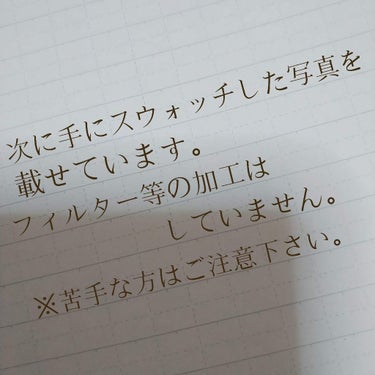 次に手にスウォッチした写真を
載せています。
フィルター等の加工は
していません。
※苦手な方はご注意下さい。